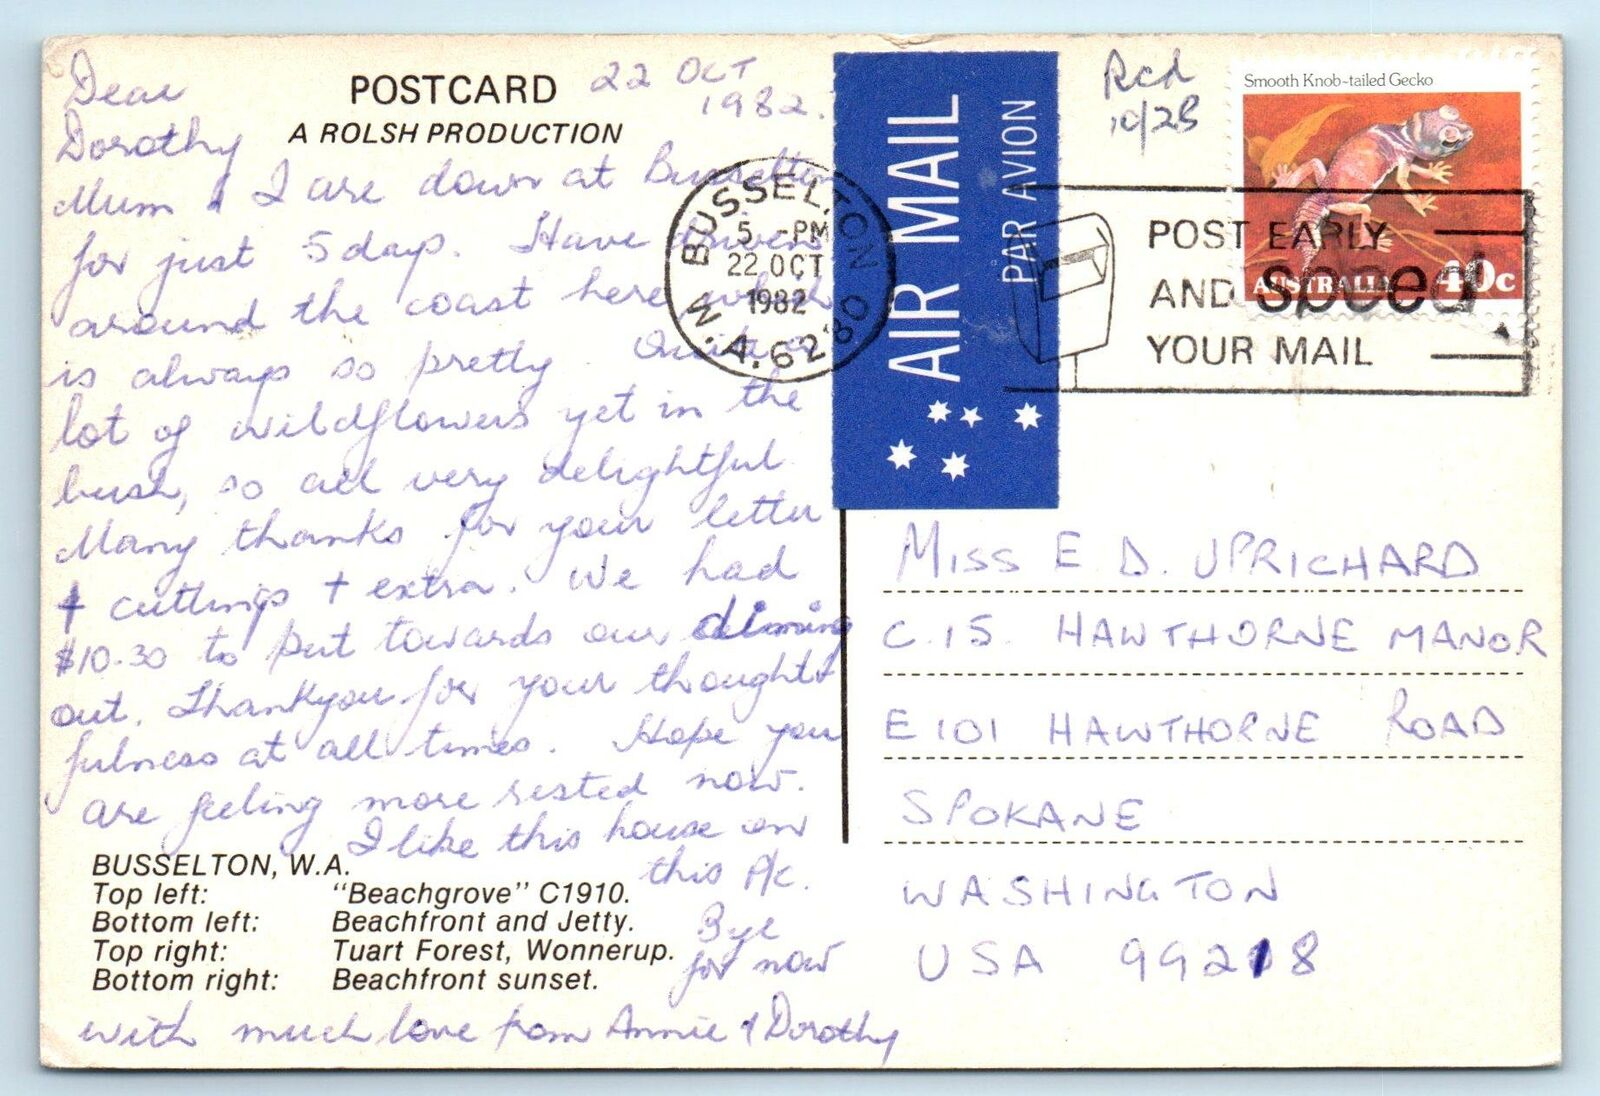 POSTCARD
A ROLSH PRODUCTION
22 OCT
1982.
Dear
Dorothy
Mum & I are down at Busselton
for just 5 days. Have driven
around the coast here which
is always so pretty. Quite a
lot of wildflowers yet in the
bush, so all very delightful.
Many thanks for your letter
+ cuttings + extra. We had
$10.30 to put towards our dining
out. Thankyou for your thought
fulness at all times. Hope you
are feeling more rested now.
I like this house on
this P/c.
Bye
for now
with much love from Annie & Dorothy
BUSSELTON, W.A.
Top left: "Beachgrove" C1910.
Bottom left: Beachfront and Jetty.
Top right: Tuart Forest, Wonnerup.
Bottom right: Beachfront sunset.
BUSSELTON
5 -PM
22 OCT
1982
W.A. 6280
AIR MAIL
PAR AVION
Rcd
10/28
Smooth Knob-tailed Gecko
AUSTRALIA 40c
POST EARLY
AND speed
YOUR MAIL
MISS E. D. UPRICHARD
C.15. HAWTHORNE MANOR
E 101 HAWTHORNE ROAD
SPOKANE
WASHINGTON
USA 99218